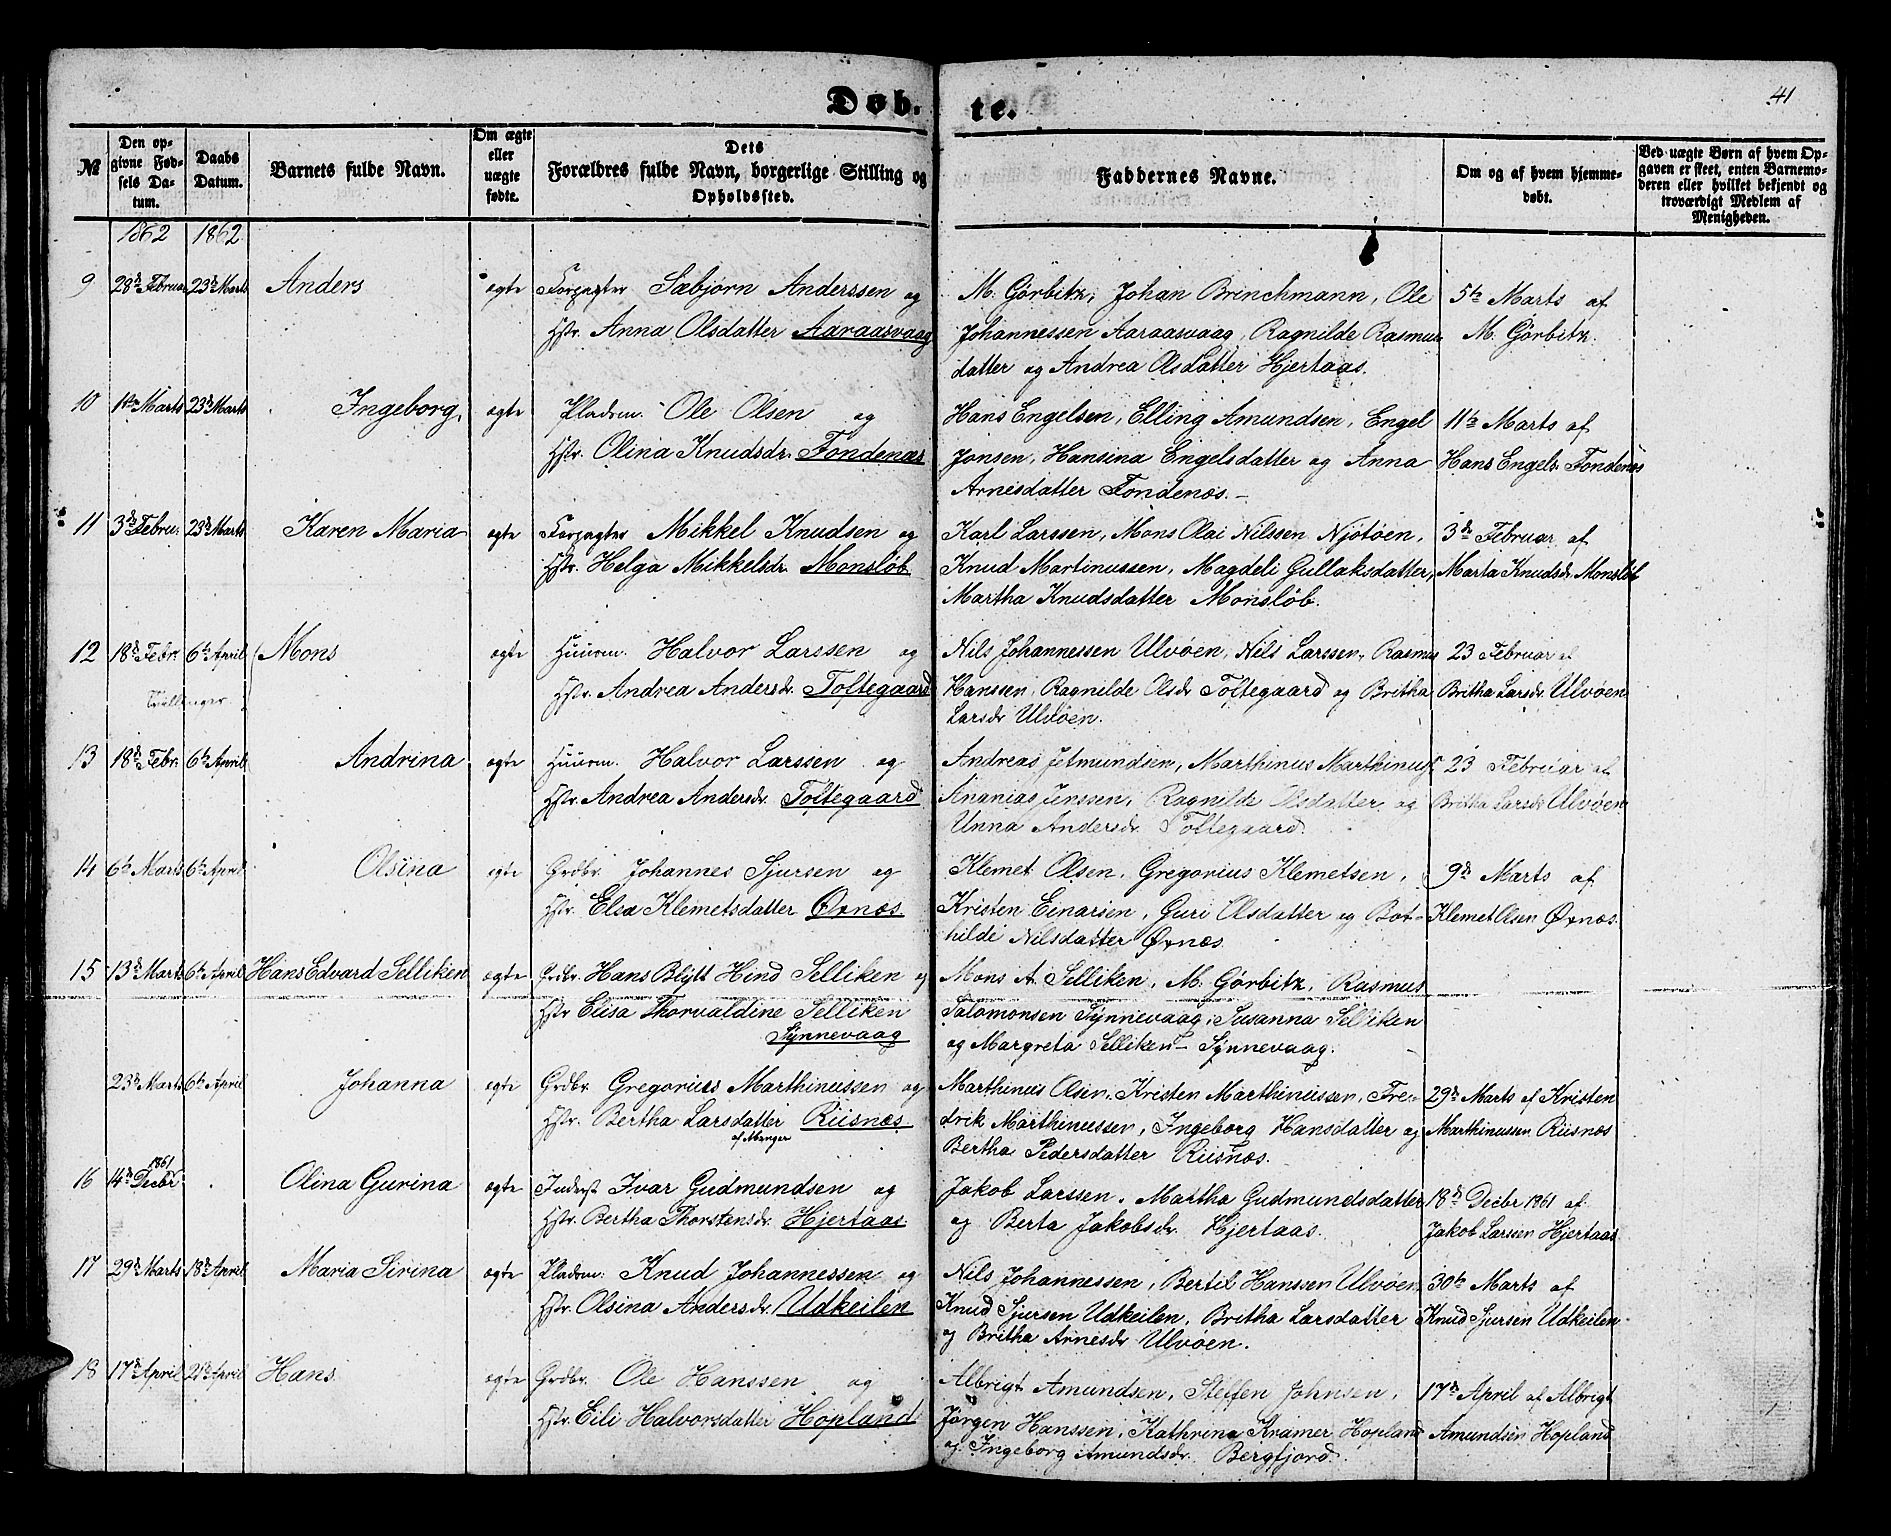 Døb- te.
41
№
Den opgivne Fødsels Datum.
Daabs Datum.
Barnets fulde Navn.
Om ægte eller uægte fødte.
Dets Forældres fulde Navn, borgerlige Stilling og Opholdssted.
Faddernes Navne.
Om og af hvem hjemmedøbt.
Ved uægte Børn af hvem Opgaven er skeet, enten Barnemoderen eller hvilket bekjendt og troværdigt Medlem af Menigheden.
1862 1862
9 28de Februar 23de Marts Anders ægte Forpagter Sæbjørn Anderssen og M. Görbitz, Johan Brinchmann, Ole 5te Marts af
Hstr. Anna Olsdatter Aaraasvaag Johannessen Aaraasvaag, Ragnilde Rasmus M. Görbitz.
datter og Andrea Olsdatter Hjertaas.
10 1ste Marts 23de Marts Ingeborg, ægte Pladsm. Ole Olsen og Hans Engelsen, Elling Amundsen, Engel 11te Marts af
Hstr. Olina Knudsdr. Fondenæs Jonsen, Hansina Engelsdatter og Anna Hans Engels. Fondenæs
Arnesdatter Fondenæs.-
11 3de Febru: 23de Marts Karen Maria ægte Forpagter Mikkel Knudsen og Karl Larssen, Mons Olai Nilssen Njøtøen, 3de Februar af
Hstr. Helga Mikkelsdr. Monsløb Knud Martinussen, Magdeli Gullaksdatter, Marta Knudsdr Monsløb
Martha Knudsdatter Monsløb.
12 18de Febr. 6te April Mons ægte Huusm. Halvor Larssen og Nils Johannessen Ulvøen, Nils Larssen, Rasmus 23 Februar af
Tvillinger Hstr. Andrea Andersdr. Toftegaard Hanssen, Ragnilde Olsdr Toftegaard og Britha Britha Larsdr. Ulvøen
Larsdr Ulvøen.
13 18de Febr. 6te April Andrina ægte Huusm. Halvor Larssen og Andreas Jetmundsen, Marthinus Marthinus. 23 Februar af
Hstr. Andrea Andersdr. Toftegaard Ananias Jenssen, Ragnilde Olsdatter og Britha Larsdr Ulvøen
Unna Andersdr. Toftegaard.
14 6te Marts 6te April Olsina ægte Grdbr. Johannes Sjursen og Klemet Olsen, Gregorius Klemetsen, 9de Marts af
Hstr. Elsa Klemetsdatter Øvnæs Kristen Einarsen, Guri Olsdatter og Bot- Klemet Olsen Øvnæs.
hilde Nilsdatter Øvnæs.
15 13de Marts 6te April Hans Edvard Selliken ægte Grdbr. Hans Blytt Hind Selliken og Mons A. Selliken, M. Görbitz, Rasmus
Hstr Elisa Thorvaldine Selliken Salomonsen Synnevaag, Susanna Selliken
Synnevaag og Margreta Selliken - Synnevaag.
23de Marts 6te April Johanna ægte Grdbr. Gregorius Marthinussen og Marthinus Olsen, Kristen Marthinussen, Fre- 29de Marts af Kristen
Hstr. Bertha Larsdatter Riisnæs drik Marthinussen, Ingeborg Hansdatter og Marthinussen Riisnæs
Bertha Pedersdatter Riisnæs.
1861
16 14de Decbr. Olina Gurina ægte Inderst Ivar Gudmundsen og Jakob Larssen, Martha Gudmundsdatter 18de Decbr 1861 af
Hstr. Bertha Thorstensdr. Hjertaas og Berta Jakobsdr. Hjertaas. Jakob Larssen Hjertaas
17 29de Marts 18de April Maria Sirina ægte Pladsm. Knud Johannessen og Nils Johannessen, Bertil Hanssen Ulvøen, 30te Marts af
Hstr. Olsina Andersdr. Udkeilen Knud Sjursen Udkeilen, Britha Larsdatter Knud Sjursen Udkeilen
og Britha Arnesdr Ulvøen.
18 17de April 21de April Hans ægte Grdbr. Ole Hanssen og Albrigt Amundsen, Steffen Johnsen, 17de April af Albrigt
Hstr. Eili Halvorsdatter Hopland Jörgen Hanssen, Kathrina Kramer Hopland Amundsen Hopland
og Ingeborg Amundsdr. Bergfjord.